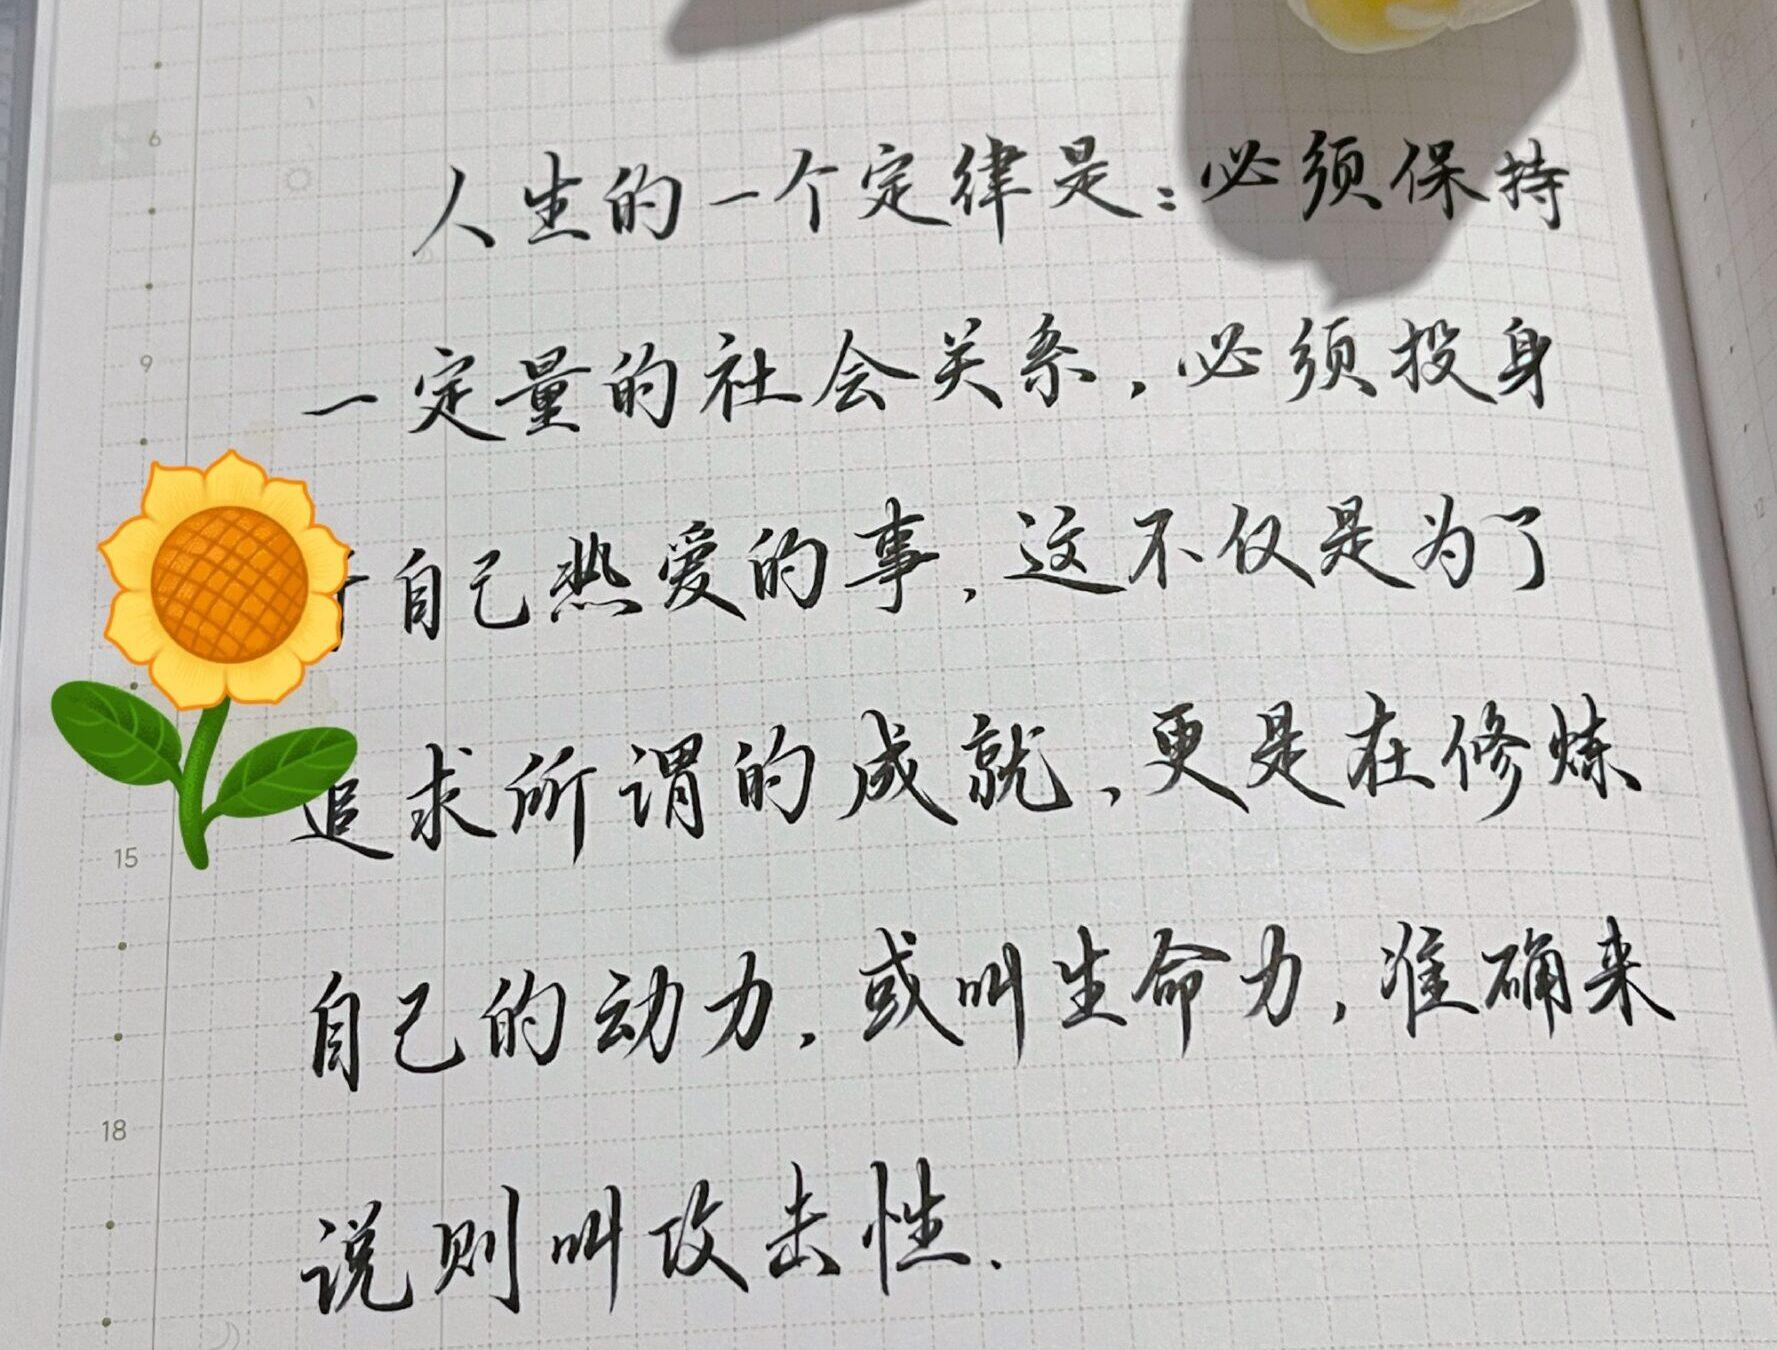 人生的一个定律是：必须保持
一定量的社会关系，必须投身
自己热爱的事，这不仅是为了
追求所谓的成就，更是在修炼
自己的动力，或叫生命力，准确来
说则叫攻击性.
6
9
15
18